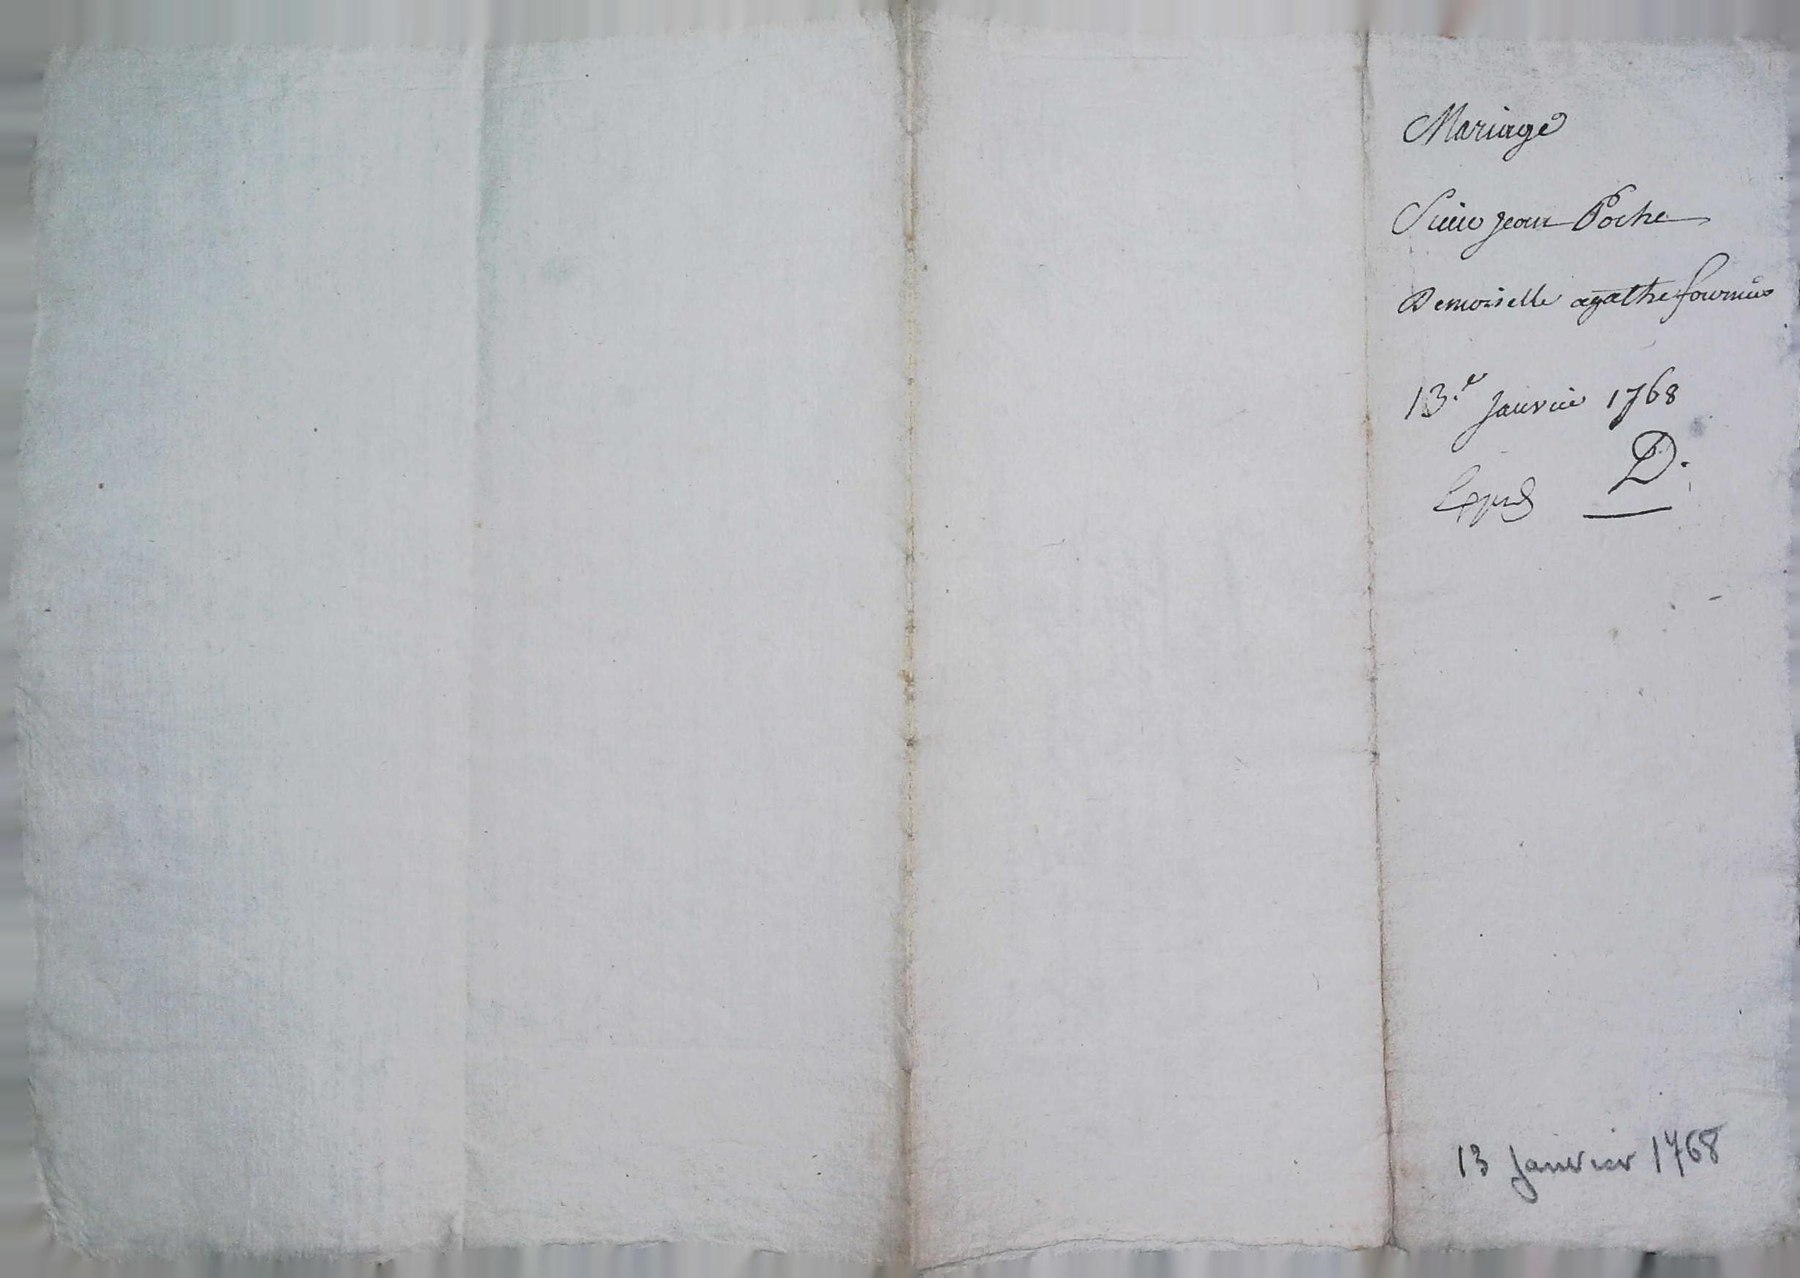 Mariage
Sieur Jean Poche
Demoiselle agathe fournier
13.e Janvier 1768
Expd D.
13 Janvier 1768